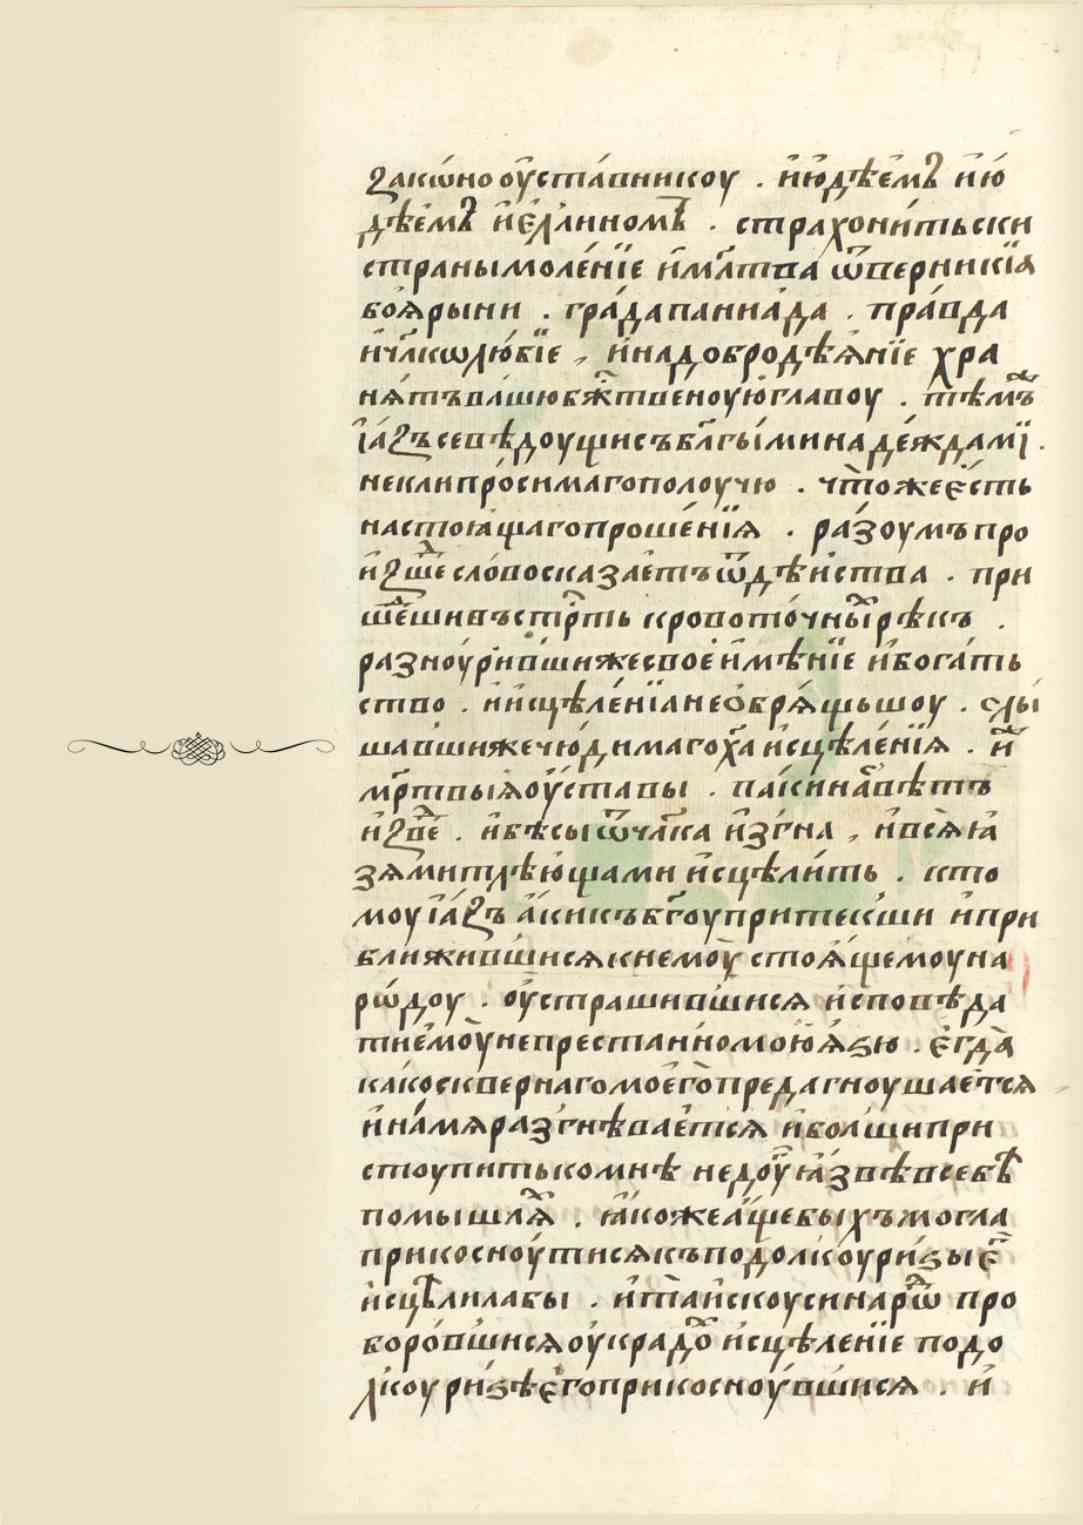 закѡ́но оу҆ста́вникоу . и҆ю҆дѣѐмъ и҆ю҆
дѣѐмъ и҆є҆ллиномъ . страхони́тьски
страны моле́нїе и҆мл҃тва ѿверникїѧ
боѧ̀рыни . гра́да паниа́да . пра́вда
и҆чл҃колю́бїе , и҆надобродѣѧ́нїе хра
нѧ́тъ ва́шю бж҃твеноую̀ главоу . тѣмъ
і҆а́зъ себѣ̀ доущисъ бл҃гы́ми наде́ждамї .
некли про́симаго полоучю . что̀же є҆́сть
настоꙗ́щаго проше́нїѧ . ра́зоумъ про
и҆зше слово сказае́тъ ѿдѣи́ства . при
ше́ши въстр҃ть кровото́чныѧ рѣкъ .
разноурившиже своѐ и҆мѣ́нїе и҆бога́ть
ство . и҆и҆сцѣле́нїа не ѡ҆брѧ́щьшоу . слы́
шавшиже чю́дима гоха̀ и҆сцѣле́нїѧ . и҆
мр҃твыѧ оу҆ставы . па́ки на́вѣтъ
и҆зве . и҆бѣсы ѿчл҃ка и҆зѓна , и҆всѧ̀ꙗ҆
зѧми тлѣю́щами и҆сцѣли́ть . кто
моу і҆а́зъ а҆́ки къ бг҃оу прите́кши и҆при
ближившисѧ к немоу̀ стоѧ́щемоу на
рѡ́доу . оу҆страшившисѧ и҆сповѣ́да
ти е҆моу̀ непрестанномою̀ ѧ҆́ѕю . є҆гда̀
ка́ко сквернаго моего̀ предагноушае́тсѧ
и҆на́мѧ разгнѣвае́тсѧ и҆болши при
стоупить ко мнѣ недоу́ ꙗ҆́звѣ всебѣ
помышлѧ̀ . ꙗ҆́коже а҆ще быхъ могла
прикосноу́тисѧ къ подолкоу ри́ѕы є҆г
и҆сцѣлила бы . и҆та̀и҆скоуси нарѡ про
боро́вшисѧ оу҆крадо̀ и҆сцѣленїе подо
лкоу ри́ѕѣ є҆го прикосноу́вшисѧ . и҆